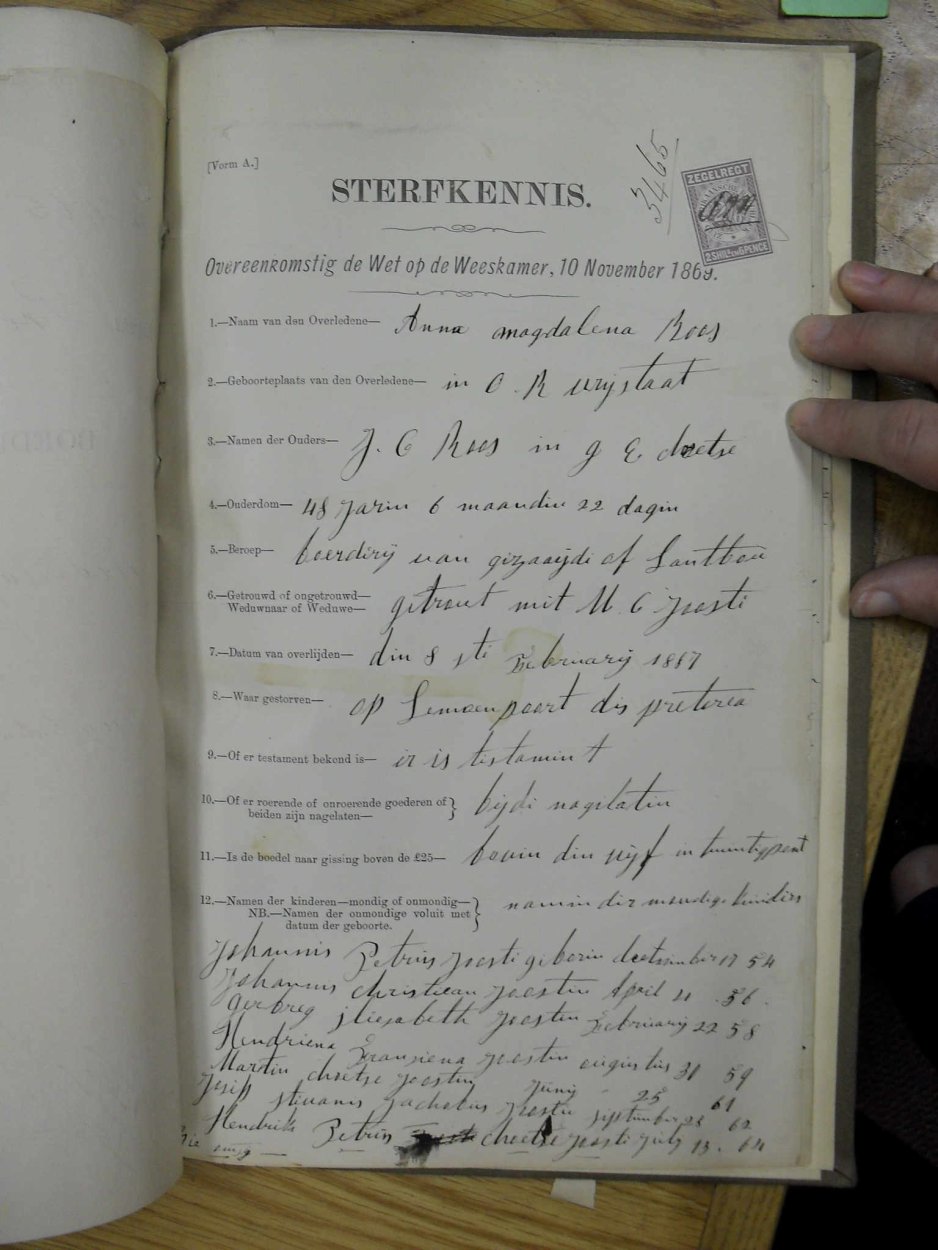 [Vorm A.]
3465
ZEGELREGT
2 SHILGS EN 6 PENCE
STERFKENNIS.
Overeenkomstig de Wet op de Weeskamer, 10 November 1869.
1.—Naam van den Overledene— Anna magdalena Roos
2.—Geboorteplaats van den Overledene— in O. R vrijstaat
3.—Namen der Ouders— J. C Roos in g E. dretse
4.—Ouderdom— 48 jarin 6 maandin 22 dagin
5.—Beroep— boerdirij van gizaaijdi of Lantbou
6.—Getrouwd of ongetrouwd—
Weduwnaar of Weduwe— gitrout mit M C Joosti
7.—Datum van overlijden— din 8 sti Februarij 1887
8.—Waar gestorven— op Lemoenpoort dis pretorea
9.—Of er testament bekend is— ir is tistamint
10.—Of er roerende of onroerende goederen of
beiden zijn nagelaten— bijdi nagilatin
11.—Is de boedel naar gissing boven de £25— bovin din vijf in twintig pont
12.—Namen der kinderen—mondig of onmondig—
NB.—Namen der onmondige voluit met
datum der geboorte. namin dir mondige kindirs
Johannis Petrus Joosti giborin deetsimbir 17 54
Johannis christiean Joostin April 11 56.
Gerbreg Eliesabeth Joostin Februarij 22 58
Hendriena Fransiena Joostin augustus 31 59
Martin chretse Joostin Junij 25 61
Josif stivanus Jachobus Joostin september 28 62
Hendrik Petrus chretse Joosti July 13. 64